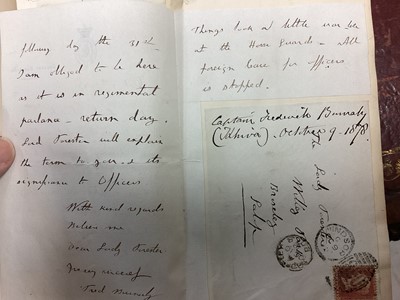 following day the 31st
I am obliged to be here
as it is in regimental
parlance – return day.
Lord Forester will explain
the term to you & its
significance to Officers
With kind regards
Believe me
Dear Lady Forester
Yours very sincerely
Fred Burnaby
Things look a little
at the Horse Guards – All
foreign leave for officers
is stopped.
Captain Frederick Burnaby
(Khiva). October 9. 1878.
The Lady Forester
Willey Park
Broseley
Salop
WINDSOR